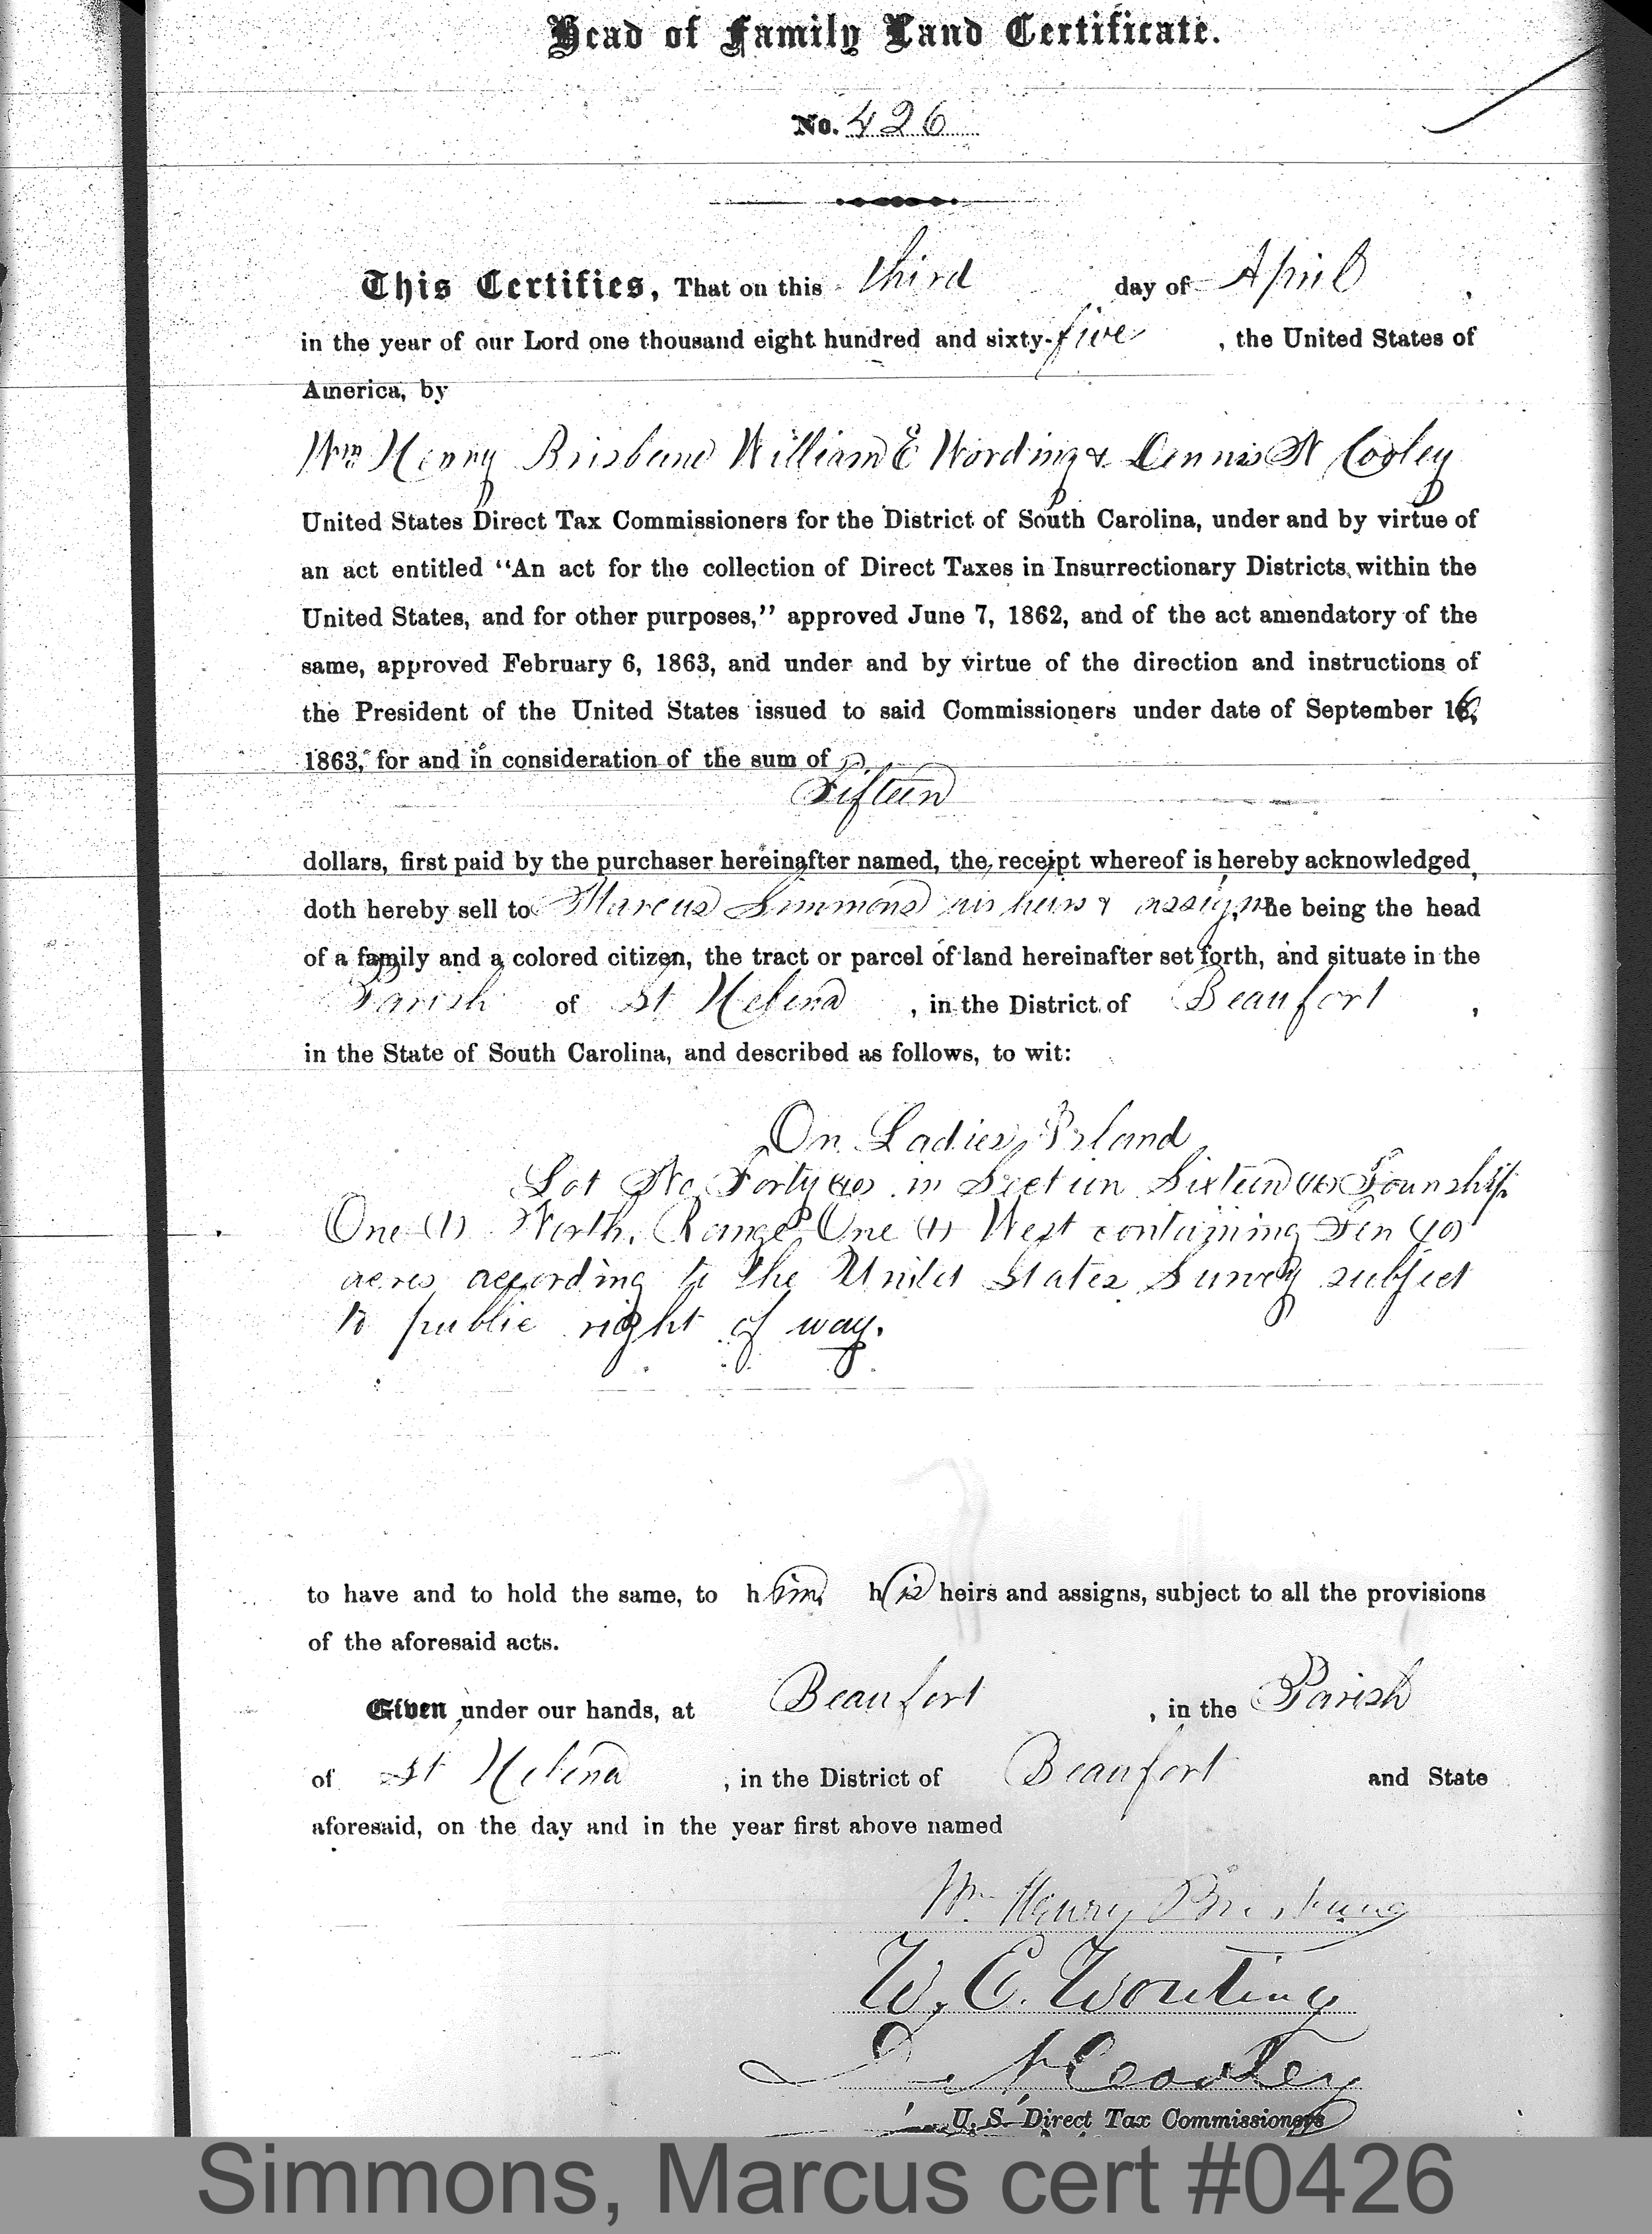 Head of Family Land Certificate.
No. 426
This Certifies, That on this third day of April,
in the year of our Lord one thousand eight hundred and sixty-five, the United States of
America, by
Wm Henry Brisbane William E Wording & Dennis N Cooley
United States Direct Tax Commissioners for the District of South Carolina, under and by virtue of
an act entitled "An act for the collection of Direct Taxes in Insurrectionary Districts within the
United States, and for other purposes," approved June 7, 1862, and of the act amendatory of the
same, approved February 6, 1863, and under and by virtue of the direction and instructions of
the President of the United States issued to said Commissioners under date of September 16,
1863, for and in consideration of the sum of
Fifteen
dollars, first paid by the purchaser hereinafter named, the receipt whereof is hereby acknowledged,
doth hereby sell to Marcus Simmons his heirs & assigns, he being the head
of a family and a colored citizen, the tract or parcel of land hereinafter set forth, and situate in the
Parish of St Helena, in the District of Beaufort,
in the State of South Carolina, and described as follows, to wit:
On Ladies Island
Lot No Forty (40) in Section Sixteen (16) Township
One (1) North, Range One (1) West containing Ten (10)
acres according to the United States Survey subject
to public right of way.
to have and to hold the same, to him his heirs and assigns, subject to all the provisions
of the aforesaid acts.
Given under our hands, at Beaufort, in the Parish
of St Helena, in the District of Beaufort and State
aforesaid, on the day and in the year first above named
Wm Henry Brisbane
W. E. Wording
D N Cooley
U. S. Direct Tax Commissioners
Simmons, Marcus cert #0426